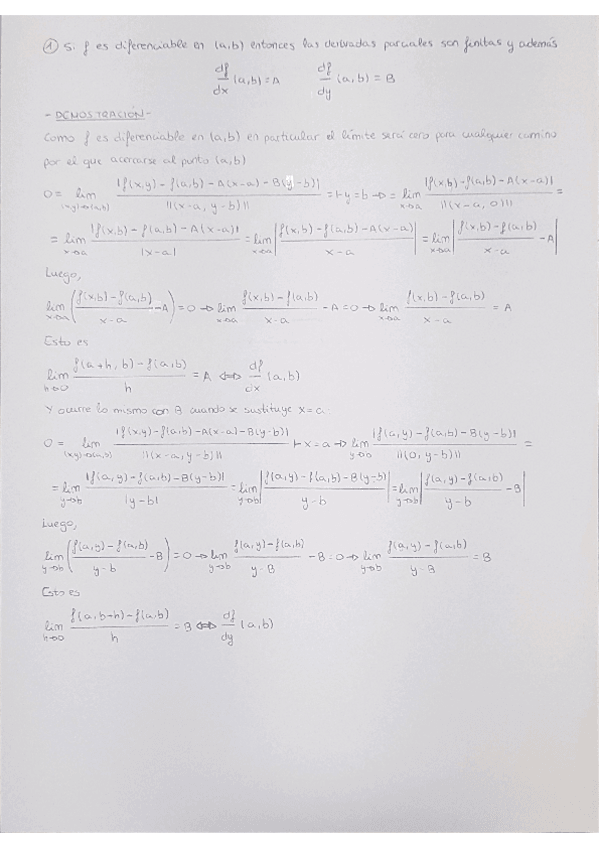 ① Si f es diferenciable en (a,b) entonces las derivadas parciales son finitas y además
df/dx (a,b) = A   df/dy (a,b) = B
- DEMOSTRACIÓN -
Como f es diferenciable en (a,b) en particular el límite será cero para cualquier camino
por el que acercarse al punto (a,b)
0 = lim (x,y)→(a,b) |f(x,y) - f(a,b) - A(x-a) - B(y-b)| / ||(x-a, y-b)|| = ⊢ y = b → = lim x→a |f(x,b) - f(a,b) - A(x-a)| / ||(x-a, 0)|| =
= lim x→a |f(x,b) - f(a,b) - A(x-a)| / |x-a| = lim x→a |(f(x,b) - f(a,b) - A(x-a)) / (x-a)| = lim x→a |(f(x,b) - f(a,b)) / (x-a) - A|
Luego,
lim x→a ((f(x,b) - f(a,b)) / (x-a) - A) = 0 → lim x→a (f(x,b) - f(a,b)) / (x-a) - A = 0 → lim x→a (f(x,b) - f(a,b)) / (x-a) = A
Esto es
lim h→0 (f(a+h, b) - f(a,b)) / h = A ⇔ df/dx (a,b)
Y ocurre lo mismo con B cuando se sustituye x = a.
0 = lim (x,y)→(a,b) |f(x,y) - f(a,b) - A(x-a) - B(y-b)| / ||(x-a, y-b)|| ⊢ x = a → lim y→b |f(a,y) - f(a,b) - B(y-b)| / ||(0, y-b)|| =
= lim y→b |f(a,y) - f(a,b) - B(y-b)| / |y-b| = lim y→b |(f(a,y) - f(a,b) - B(y-b)) / (y-b)| = lim y→b |(f(a,y) - f(a,b)) / (y-b) - B|
Luego,
lim y→b ((f(a,y) - f(a,b)) / (y-b) - B) = 0 → lim y→b (f(a,y) - f(a,b)) / (y-B) - B = 0 → lim y→b (f(a,y) - f(a,b)) / (y-B) = B
Esto es
lim h→0 (f(a,b+h) - f(a,b)) / h = B ⇔ df/dy (a,b)